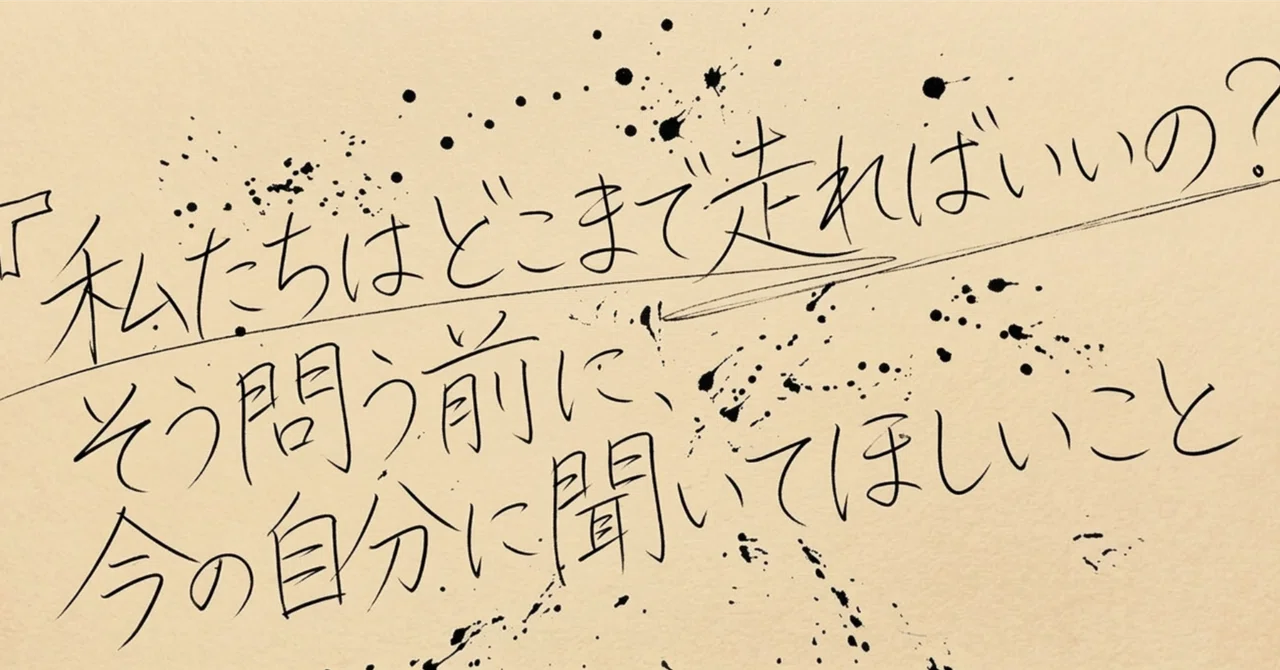 『私たちはどこまで走ればいいの?
そう問う前に、
今の自分に聞いてほしいこと